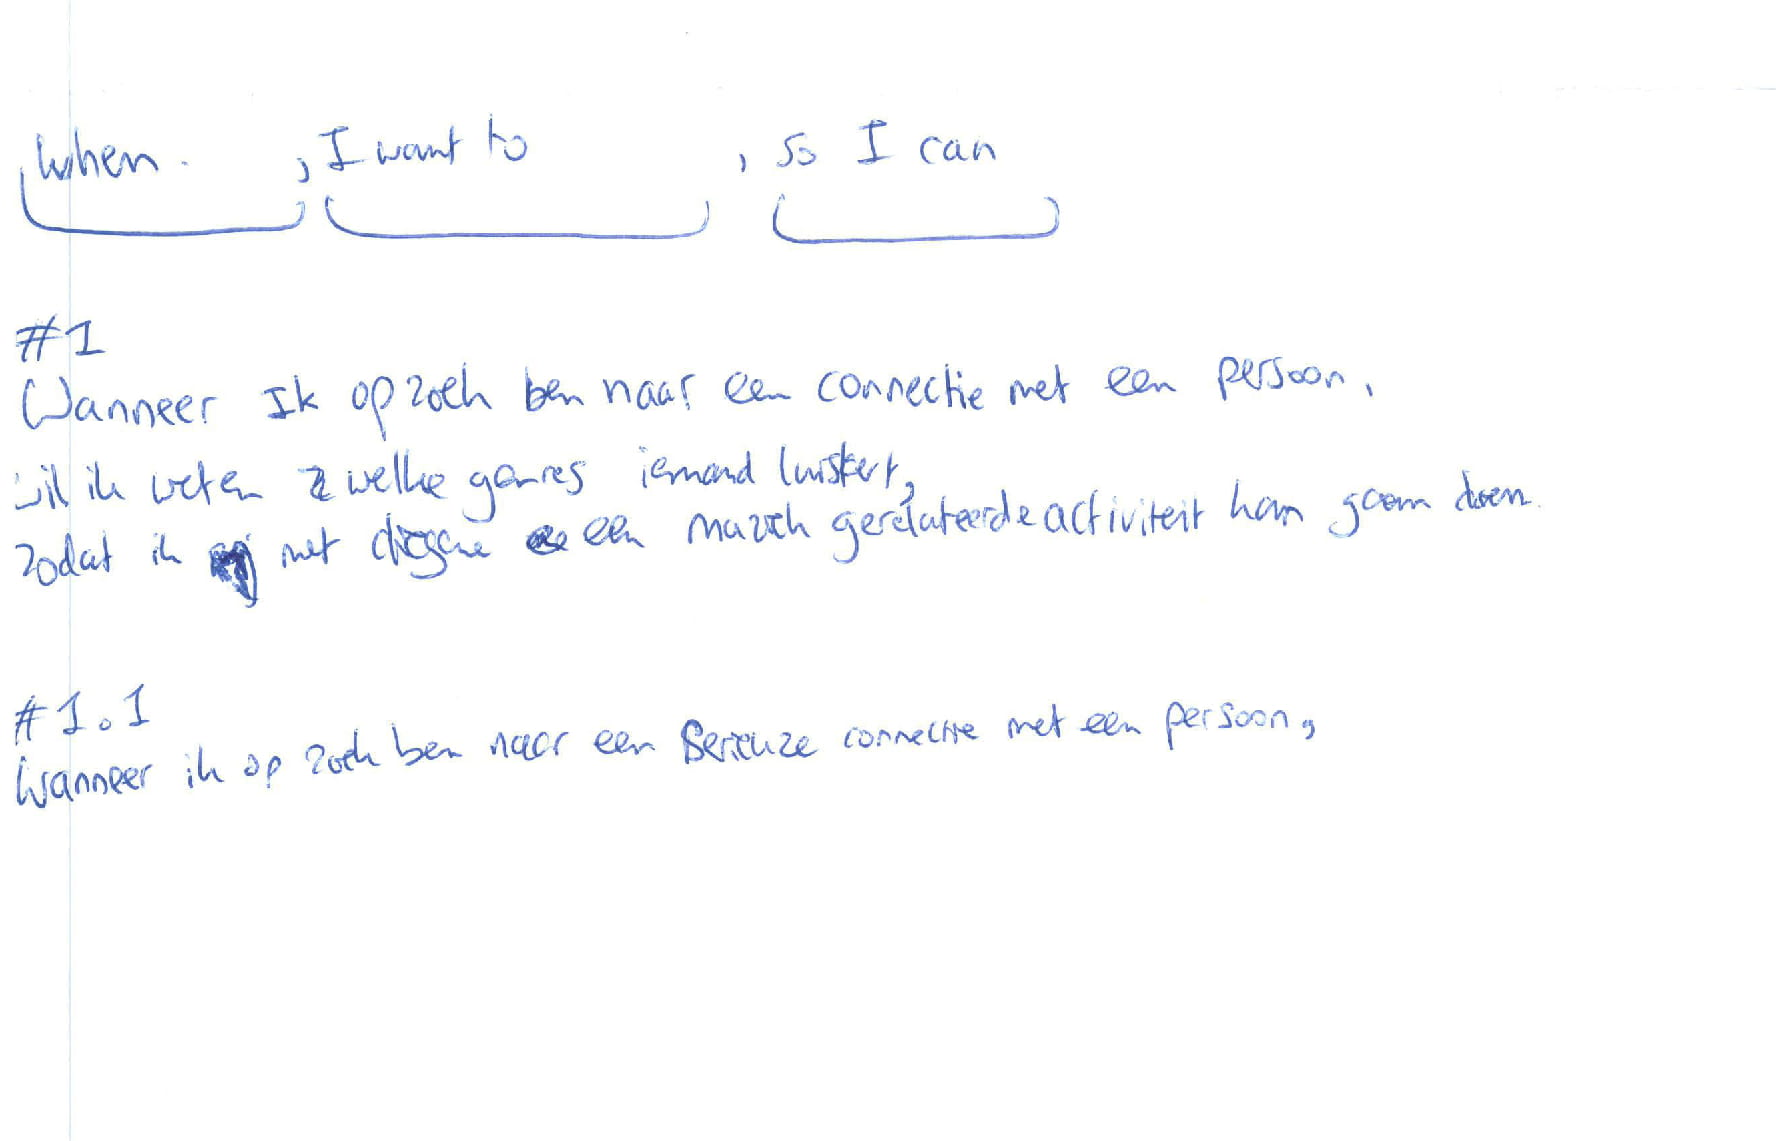 When. , I want to , so I can
#1
Wanneer Ik op zoek ben naar een connectie met een persoon,
wil ik weten welke genres iemand luistert,
zodat ik met diegene een muziek gerelateerde activiteit kan gaan doen.
#1.1
Wanneer ik op zoek ben naar een Serieuze connectie met een persoon,